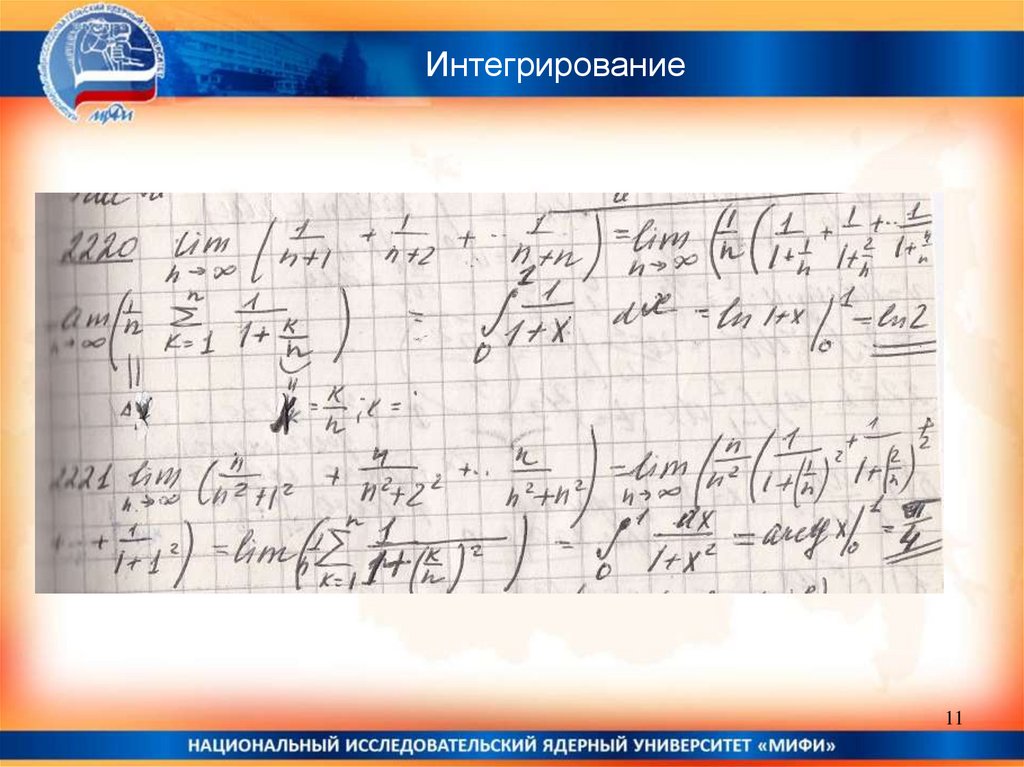 Интегрирование
2220 lim n→∞ ( 1/(n+1) + 1/(n+2) + ... 1/(n+n) ) = lim n→∞ ( 1/n ( 1/(1+1/n) + 1/(1+2/n) + ... 1/(1+n/n)
lim n→∞ ( 1/n Σ k=1 n 1/(1+k/n) ) = ∫ 0 1 1/(1+x) dx = ln 1+x / 0 1 = ln2
= k/n ;
2221 lim n→∞ ( n/(n²+1²) + n/(n²+2²) + ... n/(n²+n²) ) = lim n→∞ ( n/n² ( 1/(1+(1/n)²) + 1/(1+(2/n)²)
... + 1/(1+1²) ) = lim ( 1/n Σ k=1 n 1/(1+(k/n)²) ) = ∫ 0 1 dx/(1+x²) = arctg x / 0 = π/4
11
НАЦИОНАЛЬНЫЙ ИССЛЕДОВАТЕЛЬСКИЙ ЯДЕРНЫЙ УНИВЕРСИТЕТ «МИФИ»